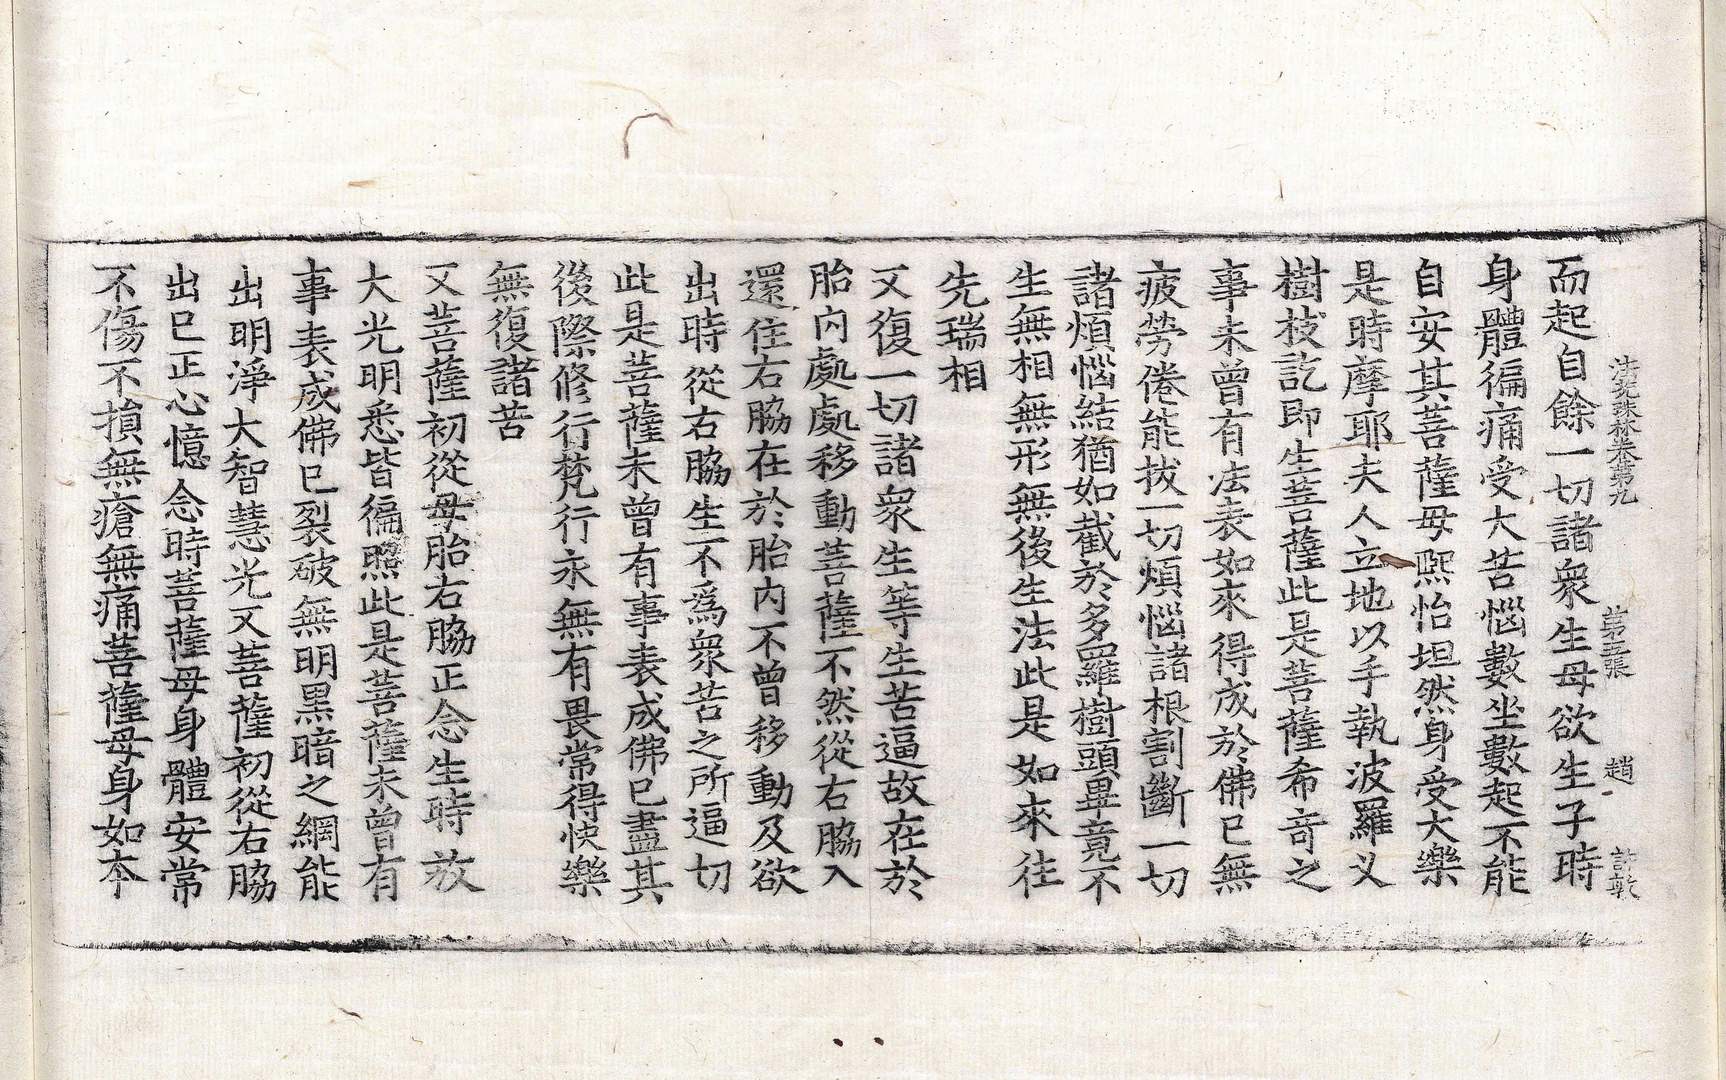 法苑珠林卷第九 第五張 趙 許敦
而起自餘一切諸衆生母欲生子時
身體徧痛受大苦惱數坐數起不能
自安其菩薩母熙怡坦然身受大樂
是時摩耶夫人立地以手執波羅义
樹枝訖即生菩薩此是菩薩希竒之
事未曾有法表如來得成於佛已無
疲勞倦能拔一切煩惱諸根割斷一切
諸煩惱結猶如截於多羅樹頭畢竟不
生無相無形無後生法此是如來往
先瑞相
又復一切諸衆生等生苦逼故在於
胎內處處移動菩薩不然從右脇入
還住右脇在於胎内不曾移動及欲
出時從右脇生不爲衆苦之所逼切
此是菩薩未曾有事表成佛已盡其
後際修行梵行永無有畏常得快樂
無復諸苦
又菩薩初從母胎右脇正念生時放
大光明悉皆徧照此是菩薩未曾有
事表成佛已裂破無明黑暗之網能
出明淨大智慧光又菩薩初從右脇
出已正心憶念時菩薩母身體安常
不傷不損無瘡無痛菩薩母身如本